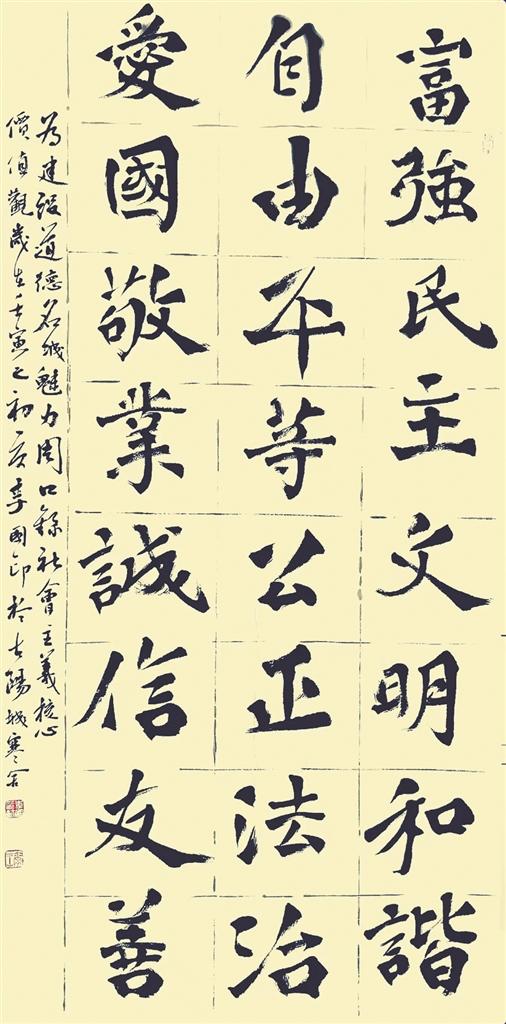 富強民主文明和諧
自由平等公正法治
愛國敬業誠信友善
為建設道德名城魅力周口錄社會主義核心
價值觀歲在壬寅之初夏李國印於古陽城寒舍